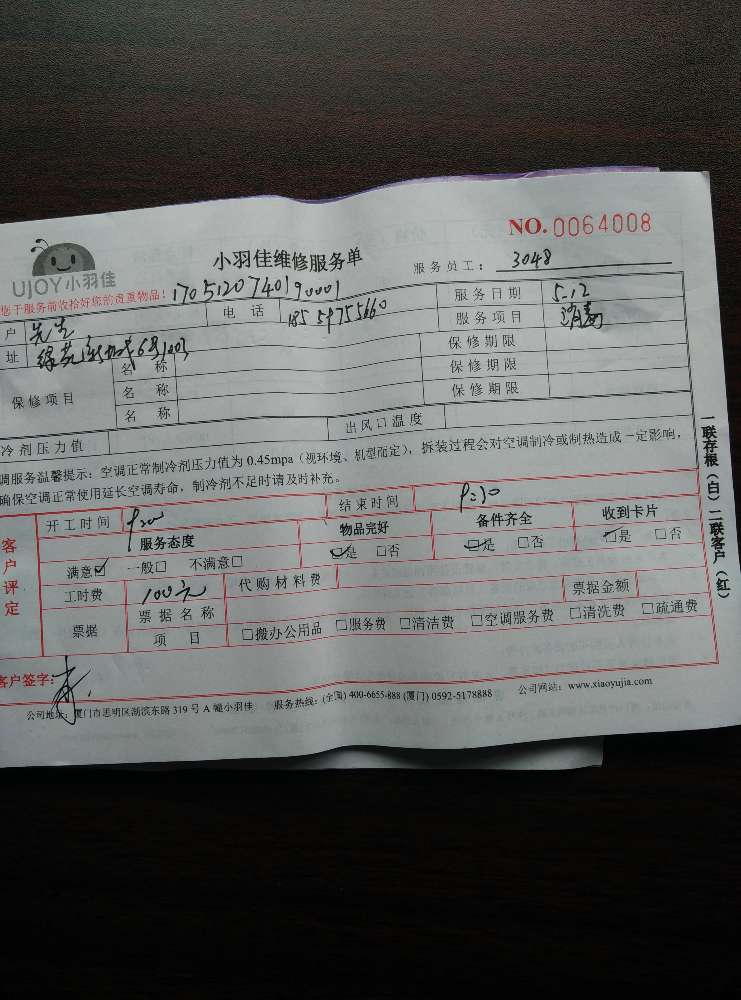 NO.0064008
UJOY小羽佳
小羽佳维修服务单
服务员工: 3048
您于服务前收拾好您的贵重物品! 1705120740190001
户 先生 电话 18559755660 服务日期 5.12
址 6号1003 服务项目 消毒
保修项目 名称 保修期限
名称 保修期限
名称 保修期限
冷剂压力值 出风口温度
调服务温馨提示:空调正常制冷剂压力值为 0.45mpa(视环境、机型而定),拆装过程会对空调制冷或制热造成一定影响,
确保空调正常使用延长空调寿命,制冷剂不足时请及时补充。
客户评定
开工时间 结束时间
服务态度 物品完好 备件齐全 收到卡片
满意☑ 一般□ 不满意□ ☑是 □否 ☑是 □否 ☑是 □否
工时费 100元 代购材料费
票据 票据名称 票据金额
项目 □搬办公用品 □服务费 □清洁费 □空调服务费 □清洗费 □疏通费
客户签字:
公司地址:厦门市思明区湖滨东路 319 号 A 幢小羽佳 服务热线:(全国) 400-6655-888 (厦门) 0592-5178888 公司网站:www.xiaoyujia.com
一联存根(白)二联客户(红)